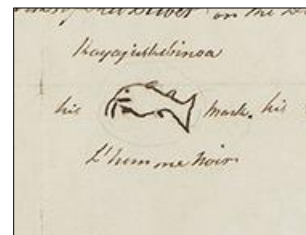 on the
Kayajickebinoa
his mark. his
L'homme Noir